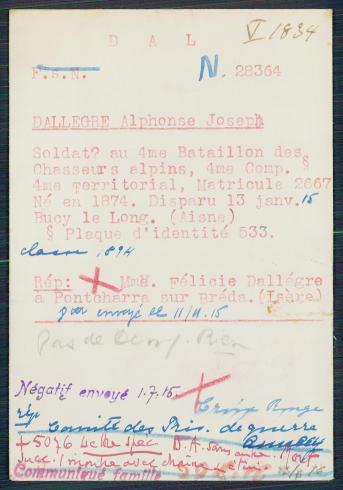 D A L
V 1834
F.s.N.
N. 28364
DALLEGRE Alphonse Joseph
Soldat? au 4me Bataillon des
Chasseurs alpins, 4me Comp. §
4me Territorial, Matricule 2667
Né en 1874. Disparu 13 janv. 15
Bucy le Long. (Aisne)
§ Plaque d'identité 533.
classe 1894
Rép: Mme. Félicie Dallégre
à Pontcharra sur Bréda. (Isère)
envoyé le 11/11.15
Pas de Rien
Négatif envoyé 1.7.15
Croix Rouge
rép
Comité des Pris. de guerre
+ 5096 D. A. sans autre
avec chaine
Communiqué famille